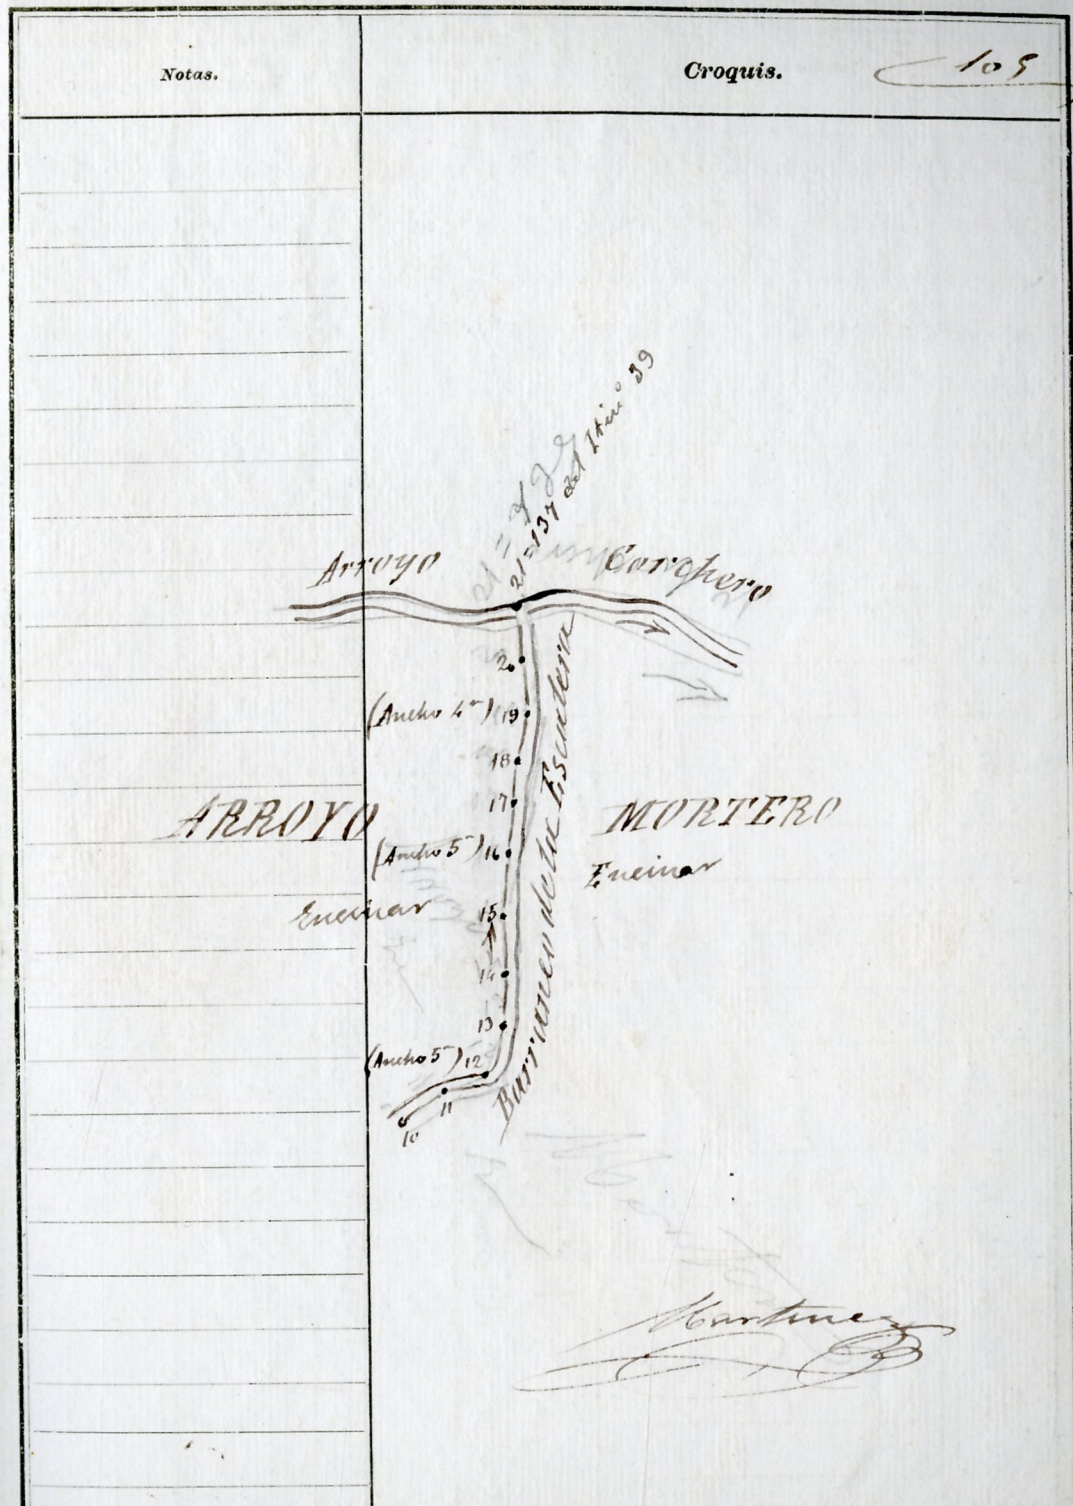 Notas.
Croquis.
105
21=137 del Itin° 39
Arroyo
20
(Ancho 4m) 19
18
17
ARROYO MORTERO
(Ancho 5m) 16
Encinar
Encinar
15
14
13
(Ancho 5m) 12
11
10
Barranco de la Escalera
Martinez